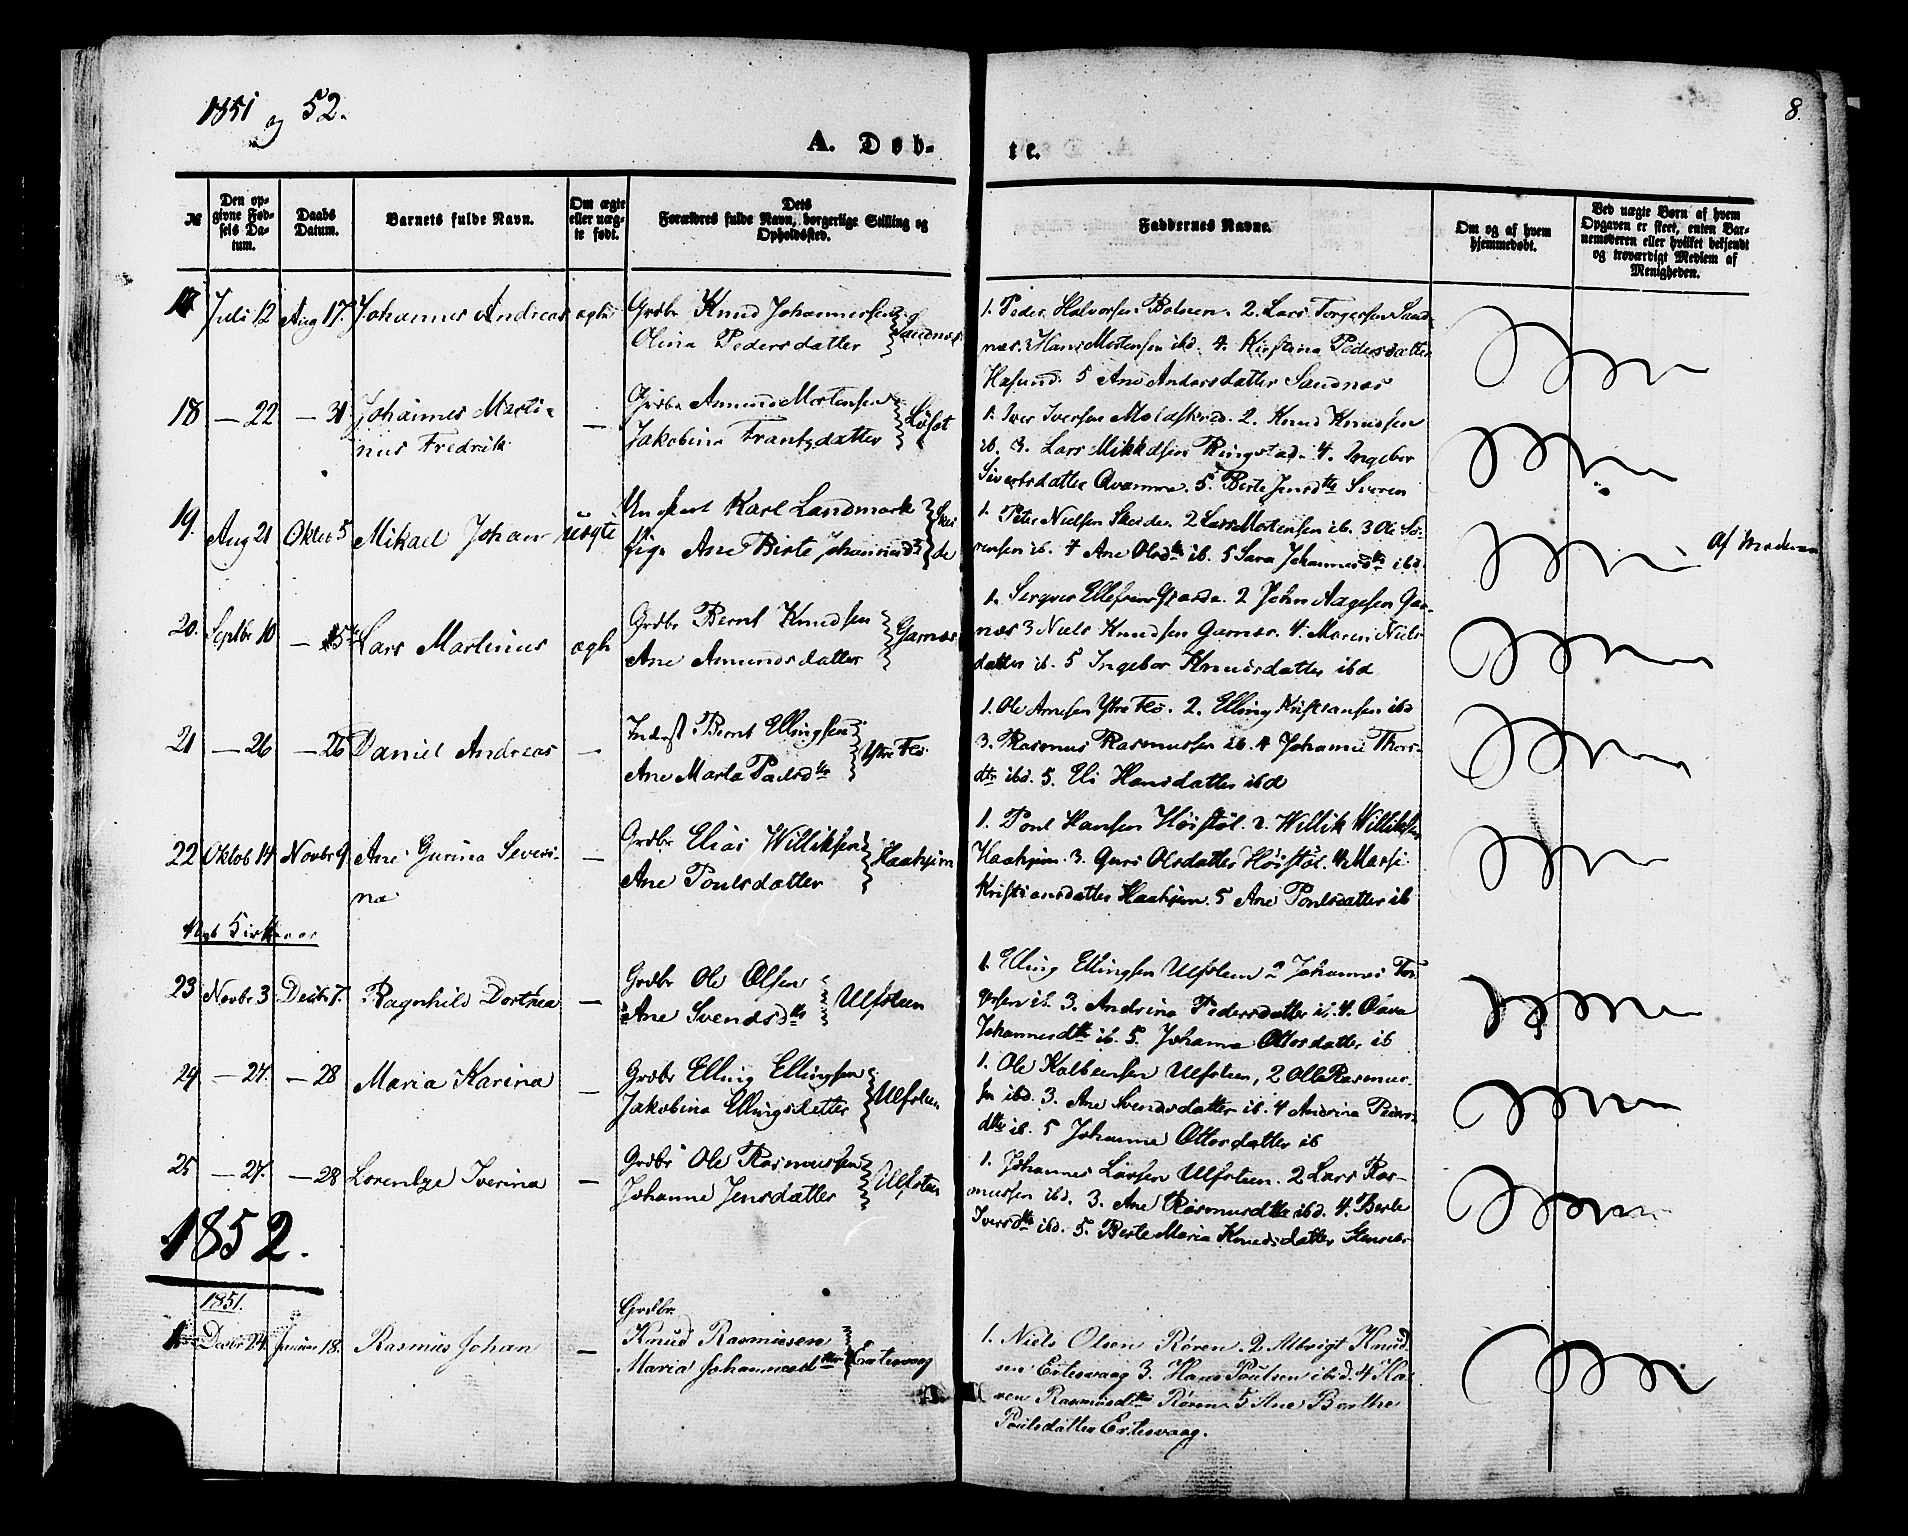 1851 og 52.
8.
A. Døb-
te.
№
Den op-
givne Fød-
sels Da-
tum.
Daabs
Datum.
Barnets fulde Navn.
Om ægte
eller uæg-
te født.
Dets
Forældres fulde Navn, borgerlige Stilling og
Opholdssted.
Faddernes Navne.
Om og af hvem
hjemmedøbt.
Ved uægte Børn af hvem
Opgaven er skeet, enten Bar-
nemoderen eller hvilket bekjendt
og troværdigt Medlem af
Menigheden.
17 Juli 12 Aug 17 Johannes Andreas ægte Grdbr Knud Johannessen
Olina Pedersdatter Sandnæs
1. Peder Halvorsen 2. Lars Torgersen Sand-
næs. 3 Hans Mortensen ibd. 4. Kirstina Pedersdatter
Hasund. 5 Ane Andersdatter Sandnæs
18 — 22 — 31 Johannes Marti-
nus Fredrik — Grdbr Amund Mortensen
Jakobina Frantzdatter
1. Iver Iversen 2. Knud Knudsen
ib. 3. Lars Mikkelsen Ringstad. 4. Ingebor
Sivertsdatter Qvamme. 5. Berte Jensdtr
19. Aug 21 Oktob 5 Mikael Johan uægte Ungkarl Karl Landmark
Pige Ane Birte Johannesdtr Skeide
1. Peter Nielsen Skeide. 2 Lars Mortensen ib. 3 Ole Sø-
rensen ib. 4 Ane Olsdtr ib. 5 Sara Johannesdtr ibd.
Af Moderen
20. Septbr 10 — 5 Lars Martinus ægte Grdbr Bernt Knudsen
Ane Amundsdatter Garnæs
1. Ellefsen 2 John Aagesen Gar-
næs 3 Niels Knudsen Garnæs. 4. Maren Niels-
datter ib. 5 Ingebor Knudsdatter ibd
21 — 26 — 26 Daniel Andreas — Inderst Bernt Ellingsen
Ane Marta Paulsdtr Ytre Flø
1. Ole Arnesen Ytre Flø. 2. Elling Kristiansen ibd
3. Rasmus Rasmussen ib. 4 Johanne Thors-
dtr ibd. 5. Eli Hansdatter ibd
22 Oktob 14 Novbr 9 Ane Gurina Severi-
na — Grdbr Elias Williksen
Ane Poulsdatter Haahjem
1. Poul Hansen Høistøl. 2. Willik Williksen
Haahjem. 3. Guri Olsdatter Høistøl. 4. Marfi
Kristiansdatter Haahjem. 5 Ane Poulsdatter ib
Nyt Kirkeaar
23 Novbr 3 Decbr 7. Ragnhild Dortnea — Grdbr Ole Olsen
Ane Svendsdtr Ulfsteen
1. Elling Ellingsen Ulfsteen 2 Johannes Tor-
gersen ib. 3. Andrina Pedersdatter ib. 4. Olava
Johannesdtr ib. 5. Johanna Ottersdatter ib
24 — 27. — 28 Maria Karina — Grdbr Elling Ellingsen
Jakobina Ellingsdatter Ulfsteen
1. Ole Kolbensen Ulfsteen, 2 Olle Rasmus-
sen ibd. 3. Ane Svendsdatter ib. 4 Andrina Peders-
dtr ib. 5 Johanne Ottersdatter ib
25 — 27. — 28 Lorentze Iverina — Grdbr Ole Rasmussen
Johanne Jensdatter Ulfsteen
1. Johannes Larsen Ulfsteen. 2 Lars Ras-
mussen ibd. 3. Ane Rasmusdtr ibd. 4. Berte
Iversdtr ibd. 5. Berte Maria Knudsdatter
1852.
1851.
1 Decbr 24. Januar 18. Rasmus Johan — Grdbr
Knud Rasmussen
Maria Johannesdtter Ertesvaag
1. Niels Olsen Røren. 2 Albrigt Knud-
sen Ertesvaag 3. Hans Poulsen ibid. 4 Ka-
ren Rasmusdtr Røren 5 Ane Berthe
Poulsdatter Ertesvaag.